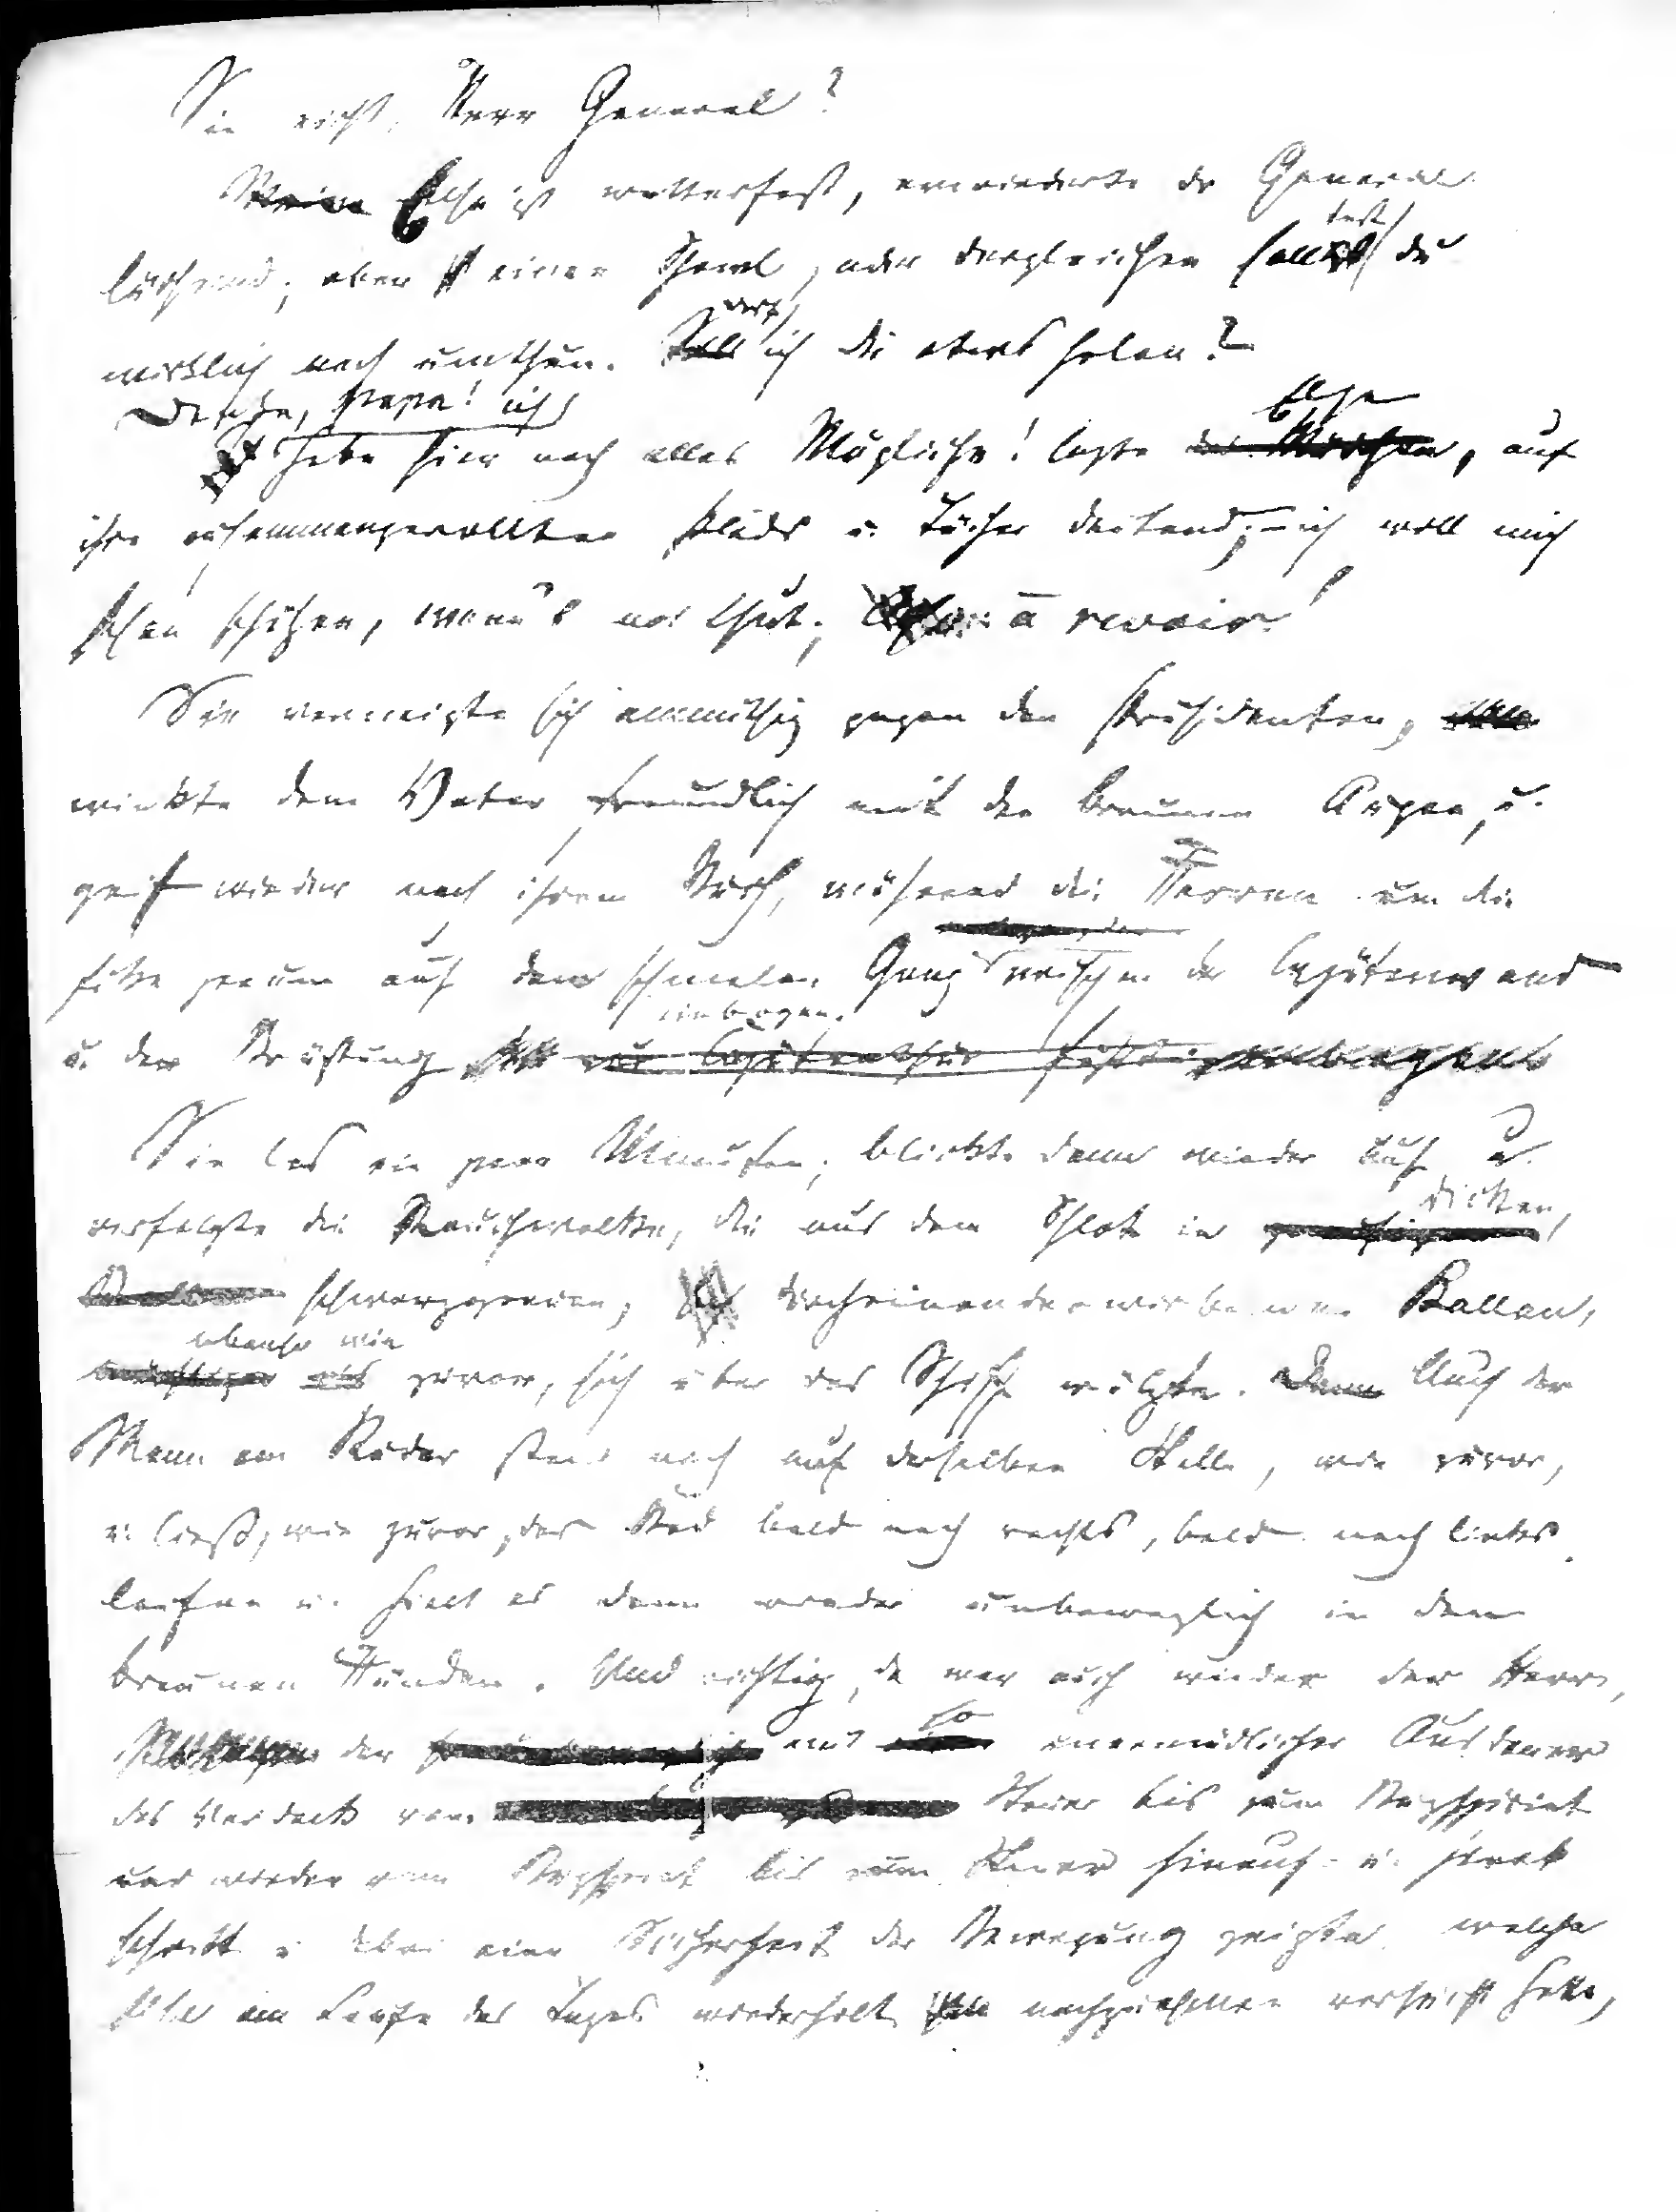 Sie nicht, Herr General?
Meine Else ist wetterfest, erwiederte der General
lächelnd; aber einen Shawl, oder dergleichen solltest du
wirklich noch umthun. Darf ich dir etwas holen?
Danke, Papa! ich
habe hier noch alles Mögliche! sagte Else, auf
ihre zusammengerollten Plaids u. Tücher deutend; – ich will mich
schon schützen, wenn's noth thut; à revoir!
Sie verneigte sich anmuthig gegen den Präsidenten,
winkte dem Vater freundlich mit den braunen Augen, u.
griff wieder nach ihrem Buch, während die Herren um die
Ecke herum auf den schmalen Gang zwischen der Cajütenwand
u. der Brüstung einbogen.
Sie las ein paar Minuten; blickte dann wieder auf u.
verfolgte die Rauchwolke, die aus dem Schlot in dicken,
schwarzgrauen, durcheinanderwirbelnden Ballen,
ebenso wie zuvor, sich über das Schiff wälzte. Auch der
Mann am Ruder stand noch auf derselben Stelle, wie zuvor,
u. ließ, wie zuvor, das Rad bald nach rechts, bald nach links
laufen u. hielt es dann wieder unbeweglich in den
braunen Händen. Und richtig, da war auch wieder der Herr,
der mit so unermüdlicher Ausdauer
das Verdeck vom Steuer bis zum Bugspriet
und wieder vom Bugspriet bis zum Steuer hinauf- u. herab
schritt u. dabei eine Sicherheit der Bewegung zeigte, welche
Else im Laufe des Tages wiederholt nachzuahmen versucht hatte,